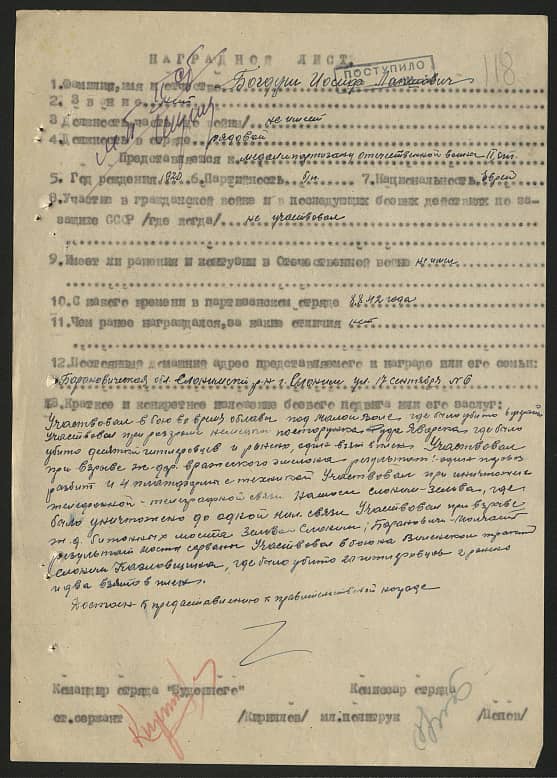 118
НАГРАДНОЙ ЛИСТ.
ПОСТУПИЛО
1. Фамилия, имя и отчество Богдуш Иосиф
2. Звание нет
3 Должность /не имеет
4. Должность в отряде рядовой
Представляется к медали партизану отечественной войны II ст.
5. Год рождения 1920 6. Партийность б/п 7. Национальность еврей
8. Участие в гражданской войне и в последующих боевых действиях по за-
защите СССР /где когда/ не участвовал
9. Имеет ли ранения и контузии в Отечественной войне не имеет
10. С какого времени в партизанском отряде 8.8.42 года
11. Чем ранее награждался, за какие отличия нет
12. Постоянный домашний адрес представляемого к награде или его семьи:
Барановическая обл. Слонимский р-н г. Слоним ул. 17 сентября № 6
13. Краткое и конкретное изложение боевого подвига или его заслуг:
Участвовал в бою во время облавы под Малой Воле где было убито
Участвовал при разгроме немецких Руда Яварская где было
убито десятой гитлеровцев и ранено, один взят в плен. Участвовал
при взрыве жел. дор. вражеского эшелона результат: один паровоз
разбит и 4 платформы с техникой Участвовал при уничтожении
телефонной - телеграфной связи На шоссе Слоним-Зельва, где
было уничтожено до одной км. связи Участвовал при взрыве
ж. д. бетонных моста Зельва Слоним; Барановичи -
результат мосты сорваны Участвовал в бою на Виленском тракте
Слоним Козловщина, где было убито 21 гитлеровцев ранено
и два взято в плен.
Достоин к представлению к правительственной награде
Командир отряда "Буденного" Комиссар отряда
ст. сержант /Кириллов/ мл. политрук /Попов/